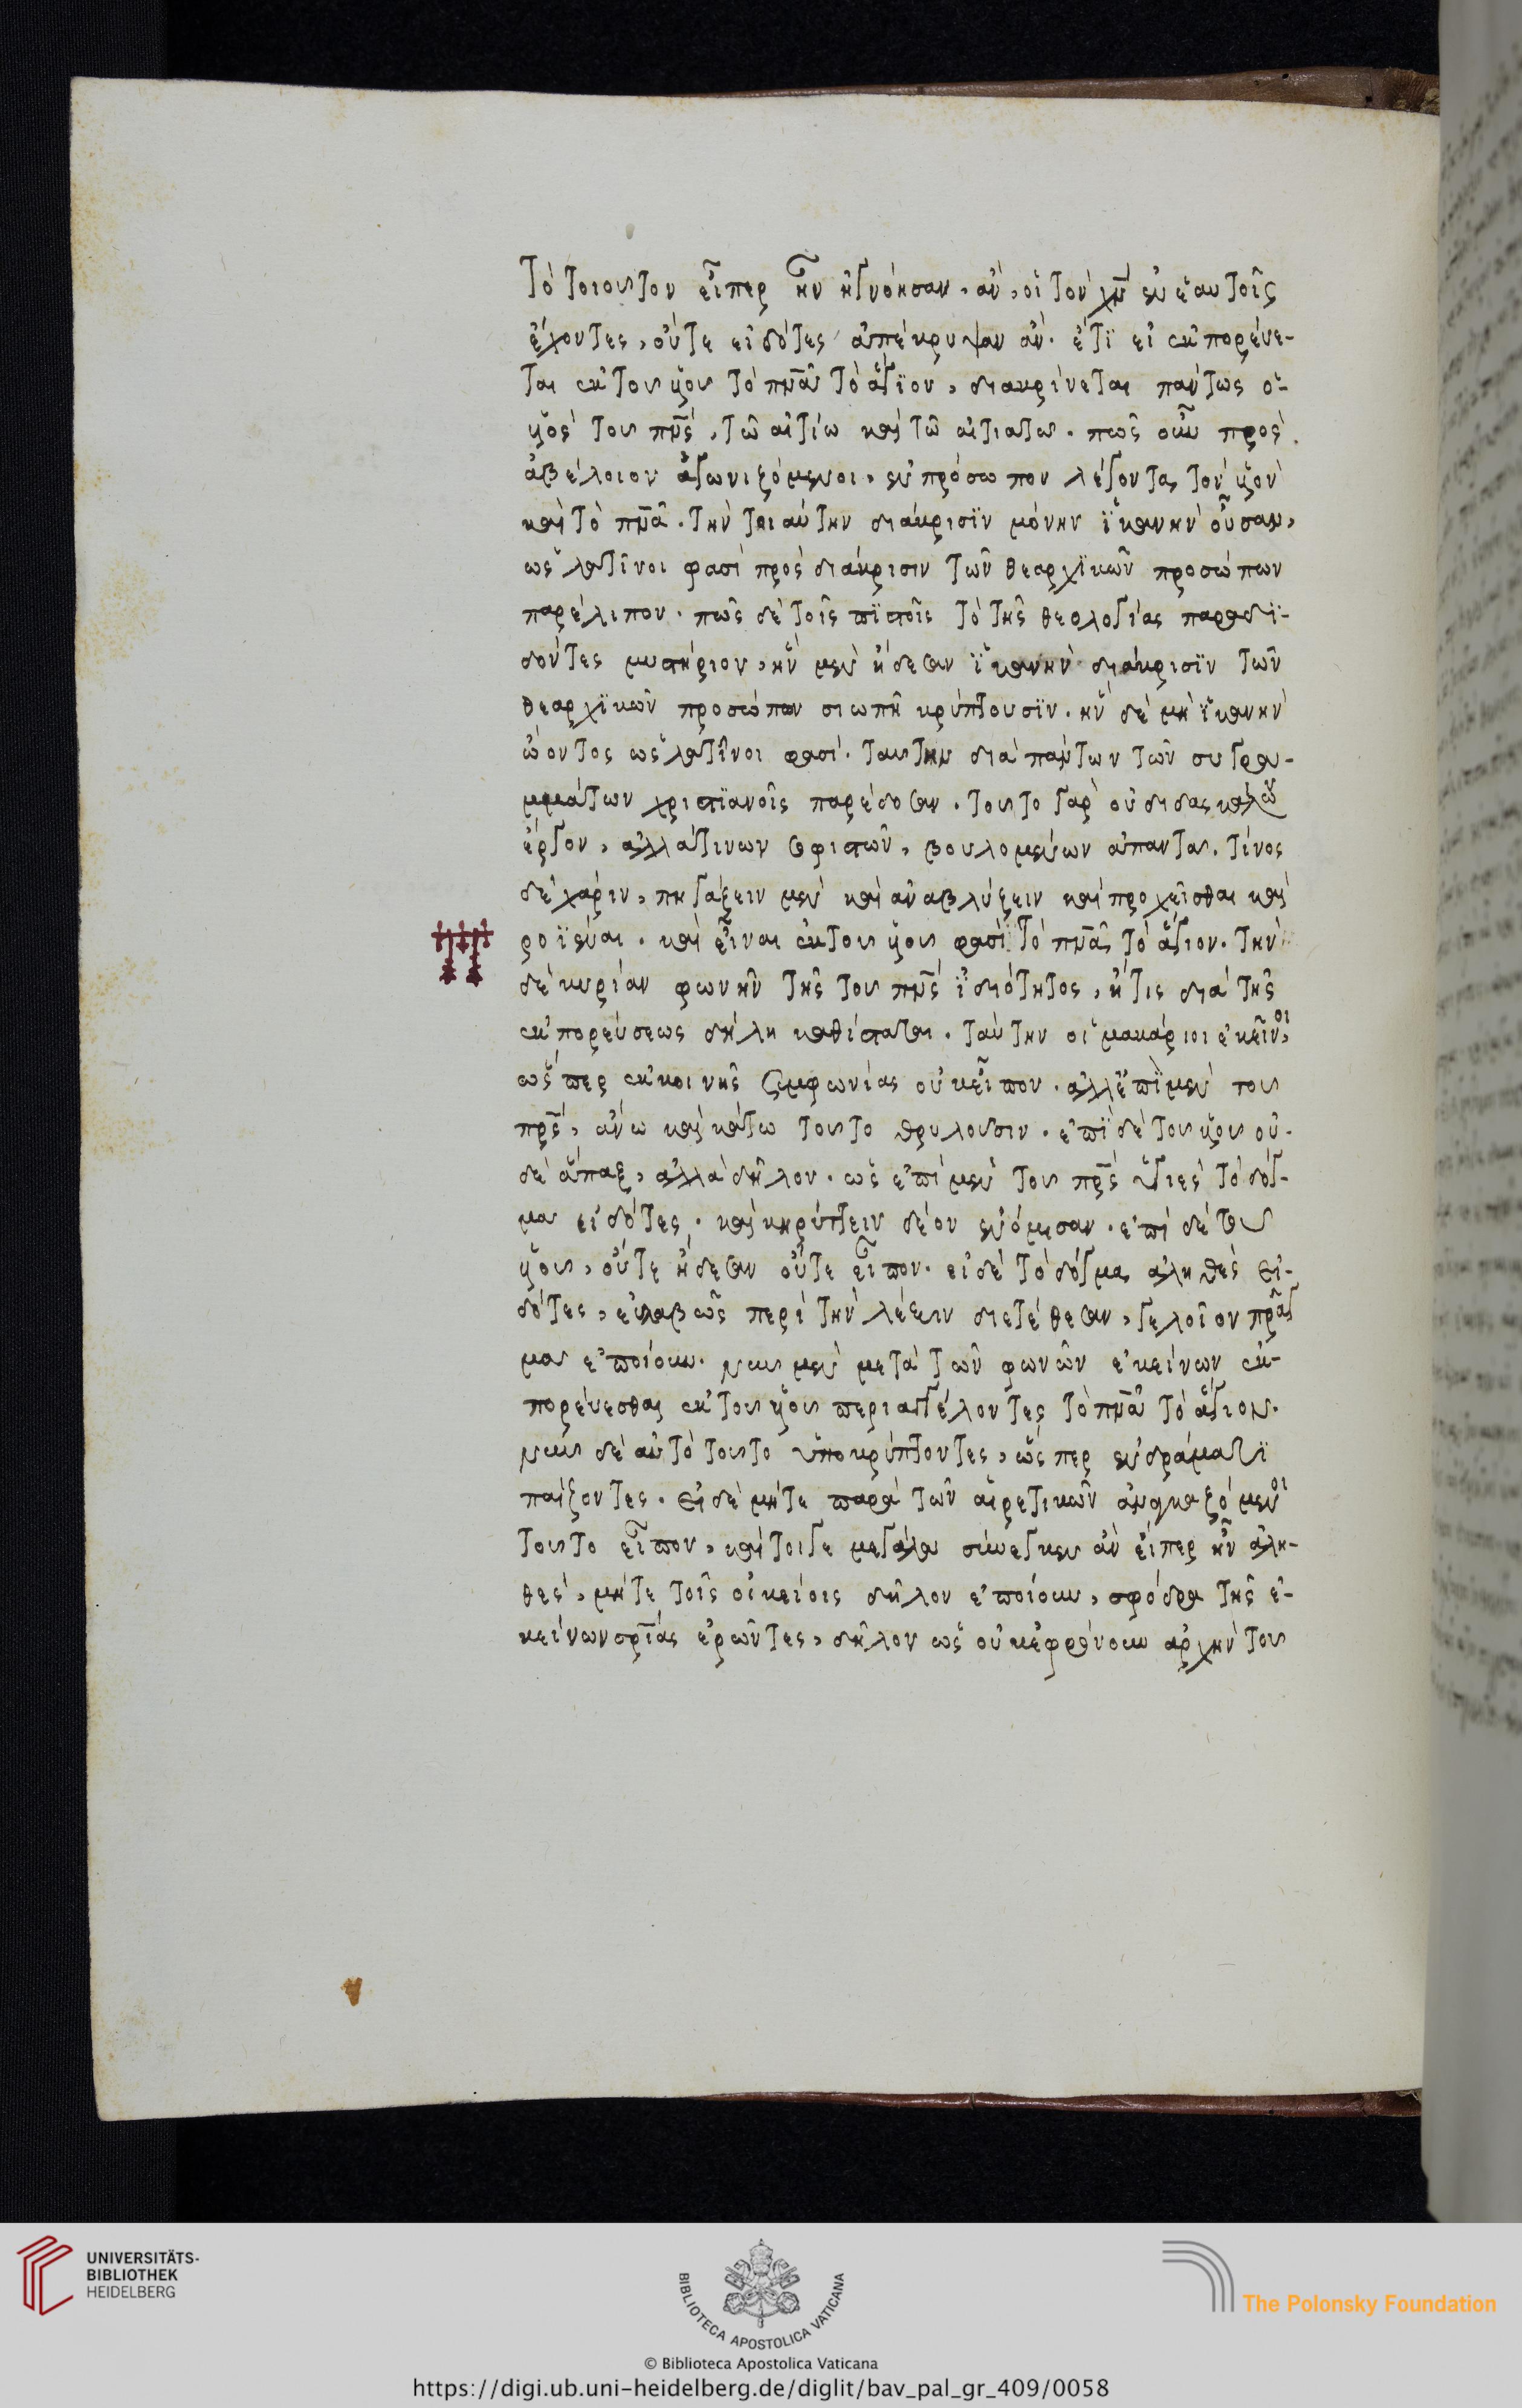 Τὸ τοιουτον εἴπερ ἦν ἠγνόησαν, ἀν, οἱ τὸν χν̄ ἐν ἑαυτοῖς
ἔχοντες, οὔτε εἰδότες ἀπέκρυψαν ἀν. ἔτϊ εἰ ἐκπορέυε-
ται ἐκ του ὑου τὸ πνᾱ τὸ ἅγϊον, διακρίνεται πάντως ὁ-
ὑὸς του πνς̄, τῶ αἰτίω καὶ τῶ αἰτιατω. πῶς οὖν πρὸς
ἀβέλοιον ἀγωνιζόμενοι, ἐν πρόσωπον λέγοντα τὸν ὑὸν
καὶ τὸ πνᾱ. τὴν τοιαύτην διάκρισϊν μόνην ϊκανὴν οὖσαν,
ὡς λατῖνοι φασὶ πρὸς διάκρισιν τῶν θεαρχϊκῶν προσώπων
παρέλιπον. πῶς δὲ τοῖς πϊστοῖς τὸ τῆς θεολογίας παραδϊ-
δόντες μυστήριον, ἣν μὲν ἤδεσαν ϊκανὴν διάκρισϊν τῶν
θεαρχϊκῶν προσώπων σιωπῆ κρύπτουσϊν. ἣν δὲ μὴ ϊκανὴν
ὡς λατῖνοι φασί. ταυτην διὰ πάντων τῶν συγγραμ-
μμάτων χριστϊανοῖς παρέδοσαν. τουτο γὰρ οὐ διδασκάλων
ἔργον, ἀλλά τινων σοφιστῶν, βουλομένων ἀπαντᾶν. τίνος
δὲ χάριν, πηγάζειν μὲν καὶ ἀναβλύζειν καὶ προχεῖσθαι καὶ
προϊέναι. καὶ εἶναι ἐκ του ὑου φασϊ τὸ πνᾱ τὸ ἅγιον. τὴν
δὲ κυρίαν φωνὴν τῆς του πνς̄ ϊδιότητος, ἥτις διὰ τῆς
ἐκπορεύσεως δήλη καθίσταται. ταύτην οἱ μακάριοι ἐκεῖνοι,
ὥσπερ ἐκ κοινῆς συμφωνίας οὐκ εἶπον. ἀλλ ἐπϊ μὲν του
πρς̄, ἄνω καὶ κάτω τουτο θρυλουσιν. ἐπϊ δὲ του ὑου οὐ-
δὲ ἅπαξ, ἀλλὰ δῆλον. ὡς ἐπὶ μὲν του πρς̄ ὑγιὲς τὸ δόγ-
μα εἰδότες. κηρύττειν δέον ἐνόμισαν. ἐπὶ δὲ του
ὑου, οὔτε ἤδεσαν οὔτε εἶπον. εἰ δὲ τὸ δόγμα ἀληθὲς εἰ-
δότες, εὐλαβῶς περὶ τὴν λέξιν διετέθεσαν, γελοῖον πρᾶγ
μα ἐποίουν. νυν μὲν μετὰ τῶν φωνῶν ἐκείνων ἐκ-
πορέυεσθαι ἐκ του ὑου περιαγγέλοντες τὸ πνᾱ τὸ ἅγιον.
νυν δὲ αὐτὸ τουτο ὑποκρύπτοντες, ὥσπερ ἐν δράματϊ
παίζοντες. εἰ δὲ μήτε παρὰ τῶν αἱρετικῶν ἀναγκαζόμενοι
τουτο εἶπον, καίτοιγε μεγάλα σύνεγκεν ἀν εἴπερ ἦν ἀλη-
θὲς, μήτε τοῖς οἰκείοις δῆλον ἐποίουν, σφόδρα τῆς ἐ-
κείνων σρῑας ἐρῶντες, δῆλον ὡς οὐκ ἐφρόνουν ἀρχὴν του
UNIVERSITÄTS-
BIBLIOTHEK
HEIDELBERG
BIBLIOTECA APOSTOLICA VATICANA
The Polonsky Foundation
© Biblioteca Apostolica Vaticana
https://digi.ub.uni-heidelberg.de/diglit/bav_pal_gr_409/0058